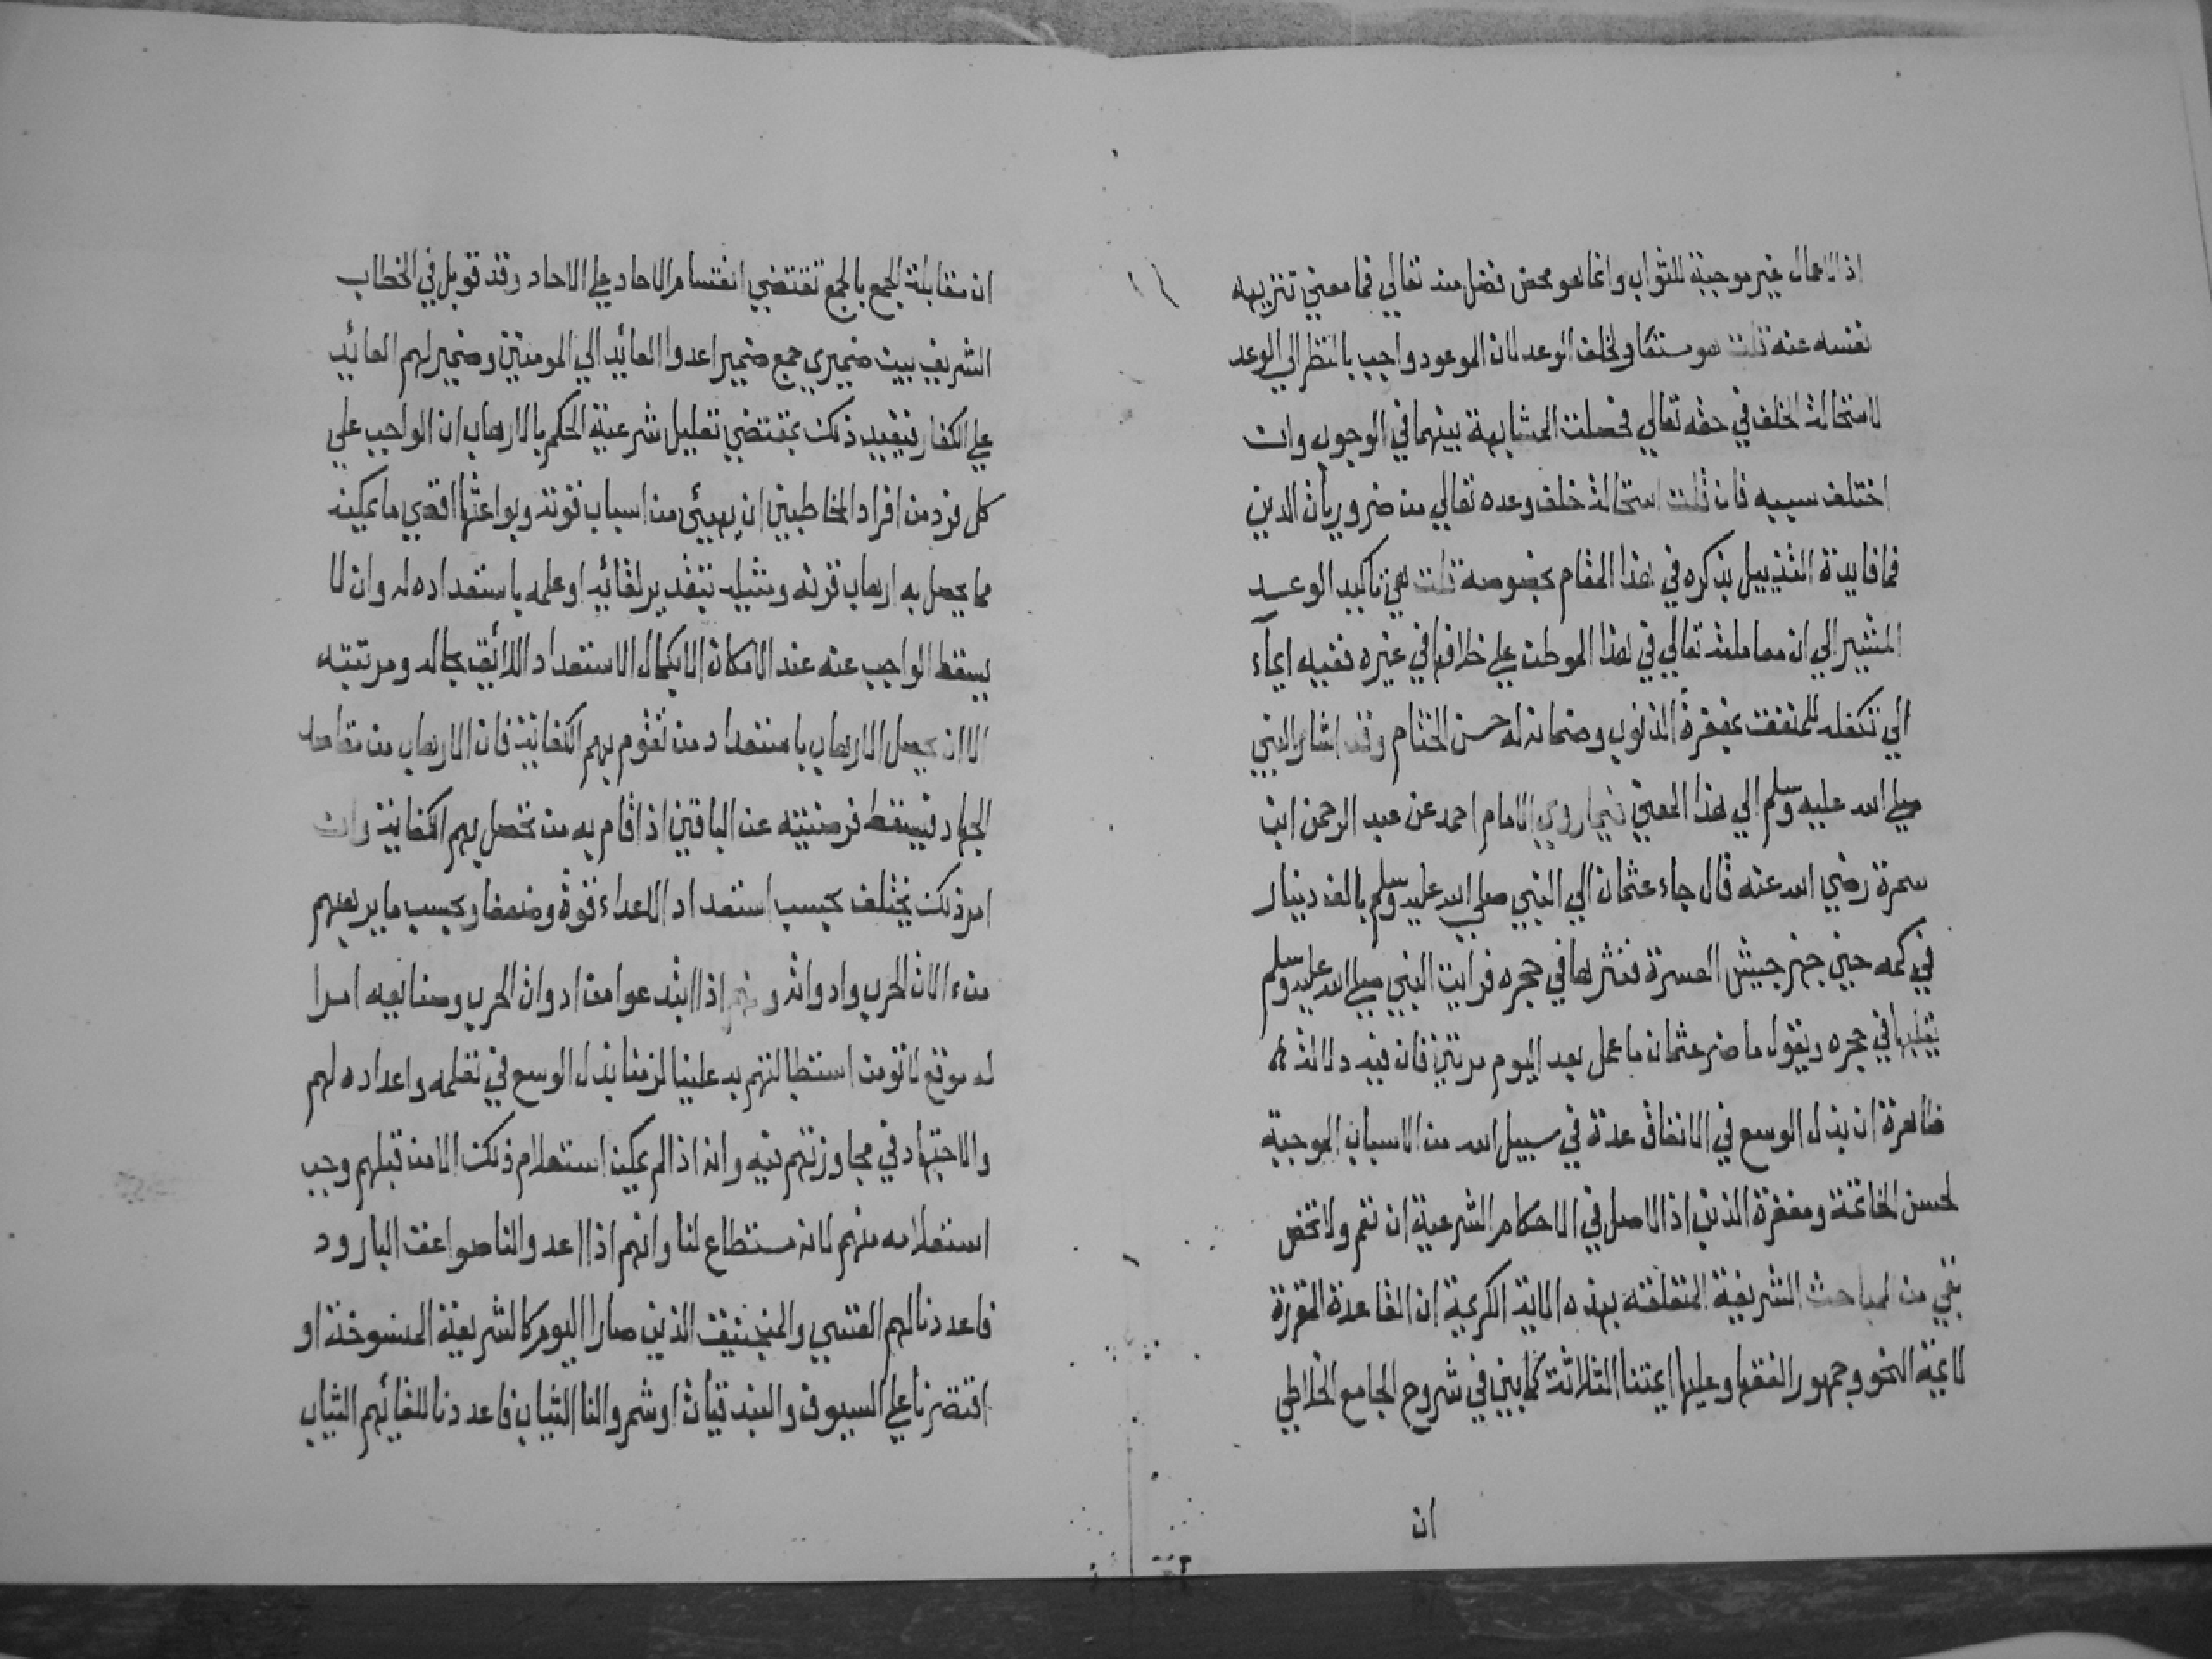 اذ الاعمال غير موجبة للثواب وانما هو محض فضل منه تعالي فما معني تنزيهه
نفسه عنه قلت هو مستكا ولخلف الوعد لان الموعود واجب بالنظر الي الوعد
لاستحالة الخلف في حقه تعالي فحصلت المشابهة بينهما في الوجوب وان
اختلف سببه فان قلت استحالة خلف وعده تعالي من ضروريات الدين
فما فايدة التذييل بذكره في هذا المقام بخصوصه قلت هي تاكيد الوعيد
المشير الي ان معاملته تعالي في هذا الموطن علي خلافها في غيره ففيه ايماء
الي تكفله للمنفق بمغفرة الذنوب وضمانه له حسن الختام وقد اشار النبي
صلي الله عليه وسلم الي هذا المعني فيما روي الامام احمد عن عبد الرحمن ابن
سمرة رضي الله عنه قال جاء عثمان الي النبي صلي الله عليه وسلم بالف دينار
في كمه حين جهز جيش العسرة فنثرها في حجره فرايت النبي صلي الله عليه وسلم
يقلبها في حجره ويقول ما ضر عثمان ما عمل بعد اليوم مرتين فان فيه دلالة
ظاهرة ان بذل الوسع في الانفاق عدة في سبيل الله من الاسباب الموجبة
لحسن الخاتمة ومغفرة الذنب اذ الاصل في الاحكام الشرعية ان تعم ولا تخص
بقي من المباحث الشريفة المتعلقه بهذه الاية الكريمة ان القاعدة المقررة
لائمة النحو وجمهور الفقها وعليها ايمتنا الثلاثة كما بين في شروح الجامع الخلاطي
ان
ان مقابلة الجمع بالجمع تقتضي انقسام الاحاد علي الاحاد وقد قوبل في الخطاب
الشريف بين ضميري جمع ضمير اعدوا العائد الي المومنين وضمير لهم العائد
علي الكفار فيفيد ذلك بمقتضي تعليل شرعية الحكم بالارهاب ان الواجب علي
كل فرد من افراد المخاطبين ان يهيئ من اسباب قوته وبواعثها اقصي ما يمكنه
مما يحصل به ارهاب قرنه ومثيله بتقدير لقائه او علمه باستعداده له وان لا
يسقط الواجب عنه عند الامكان الا بكمال الاستعداد اللائق بحاله ومرتبته
الا ان يحصل الارهاب باستعداد من تقوم بهم الكفاية فان الارهاب من مقاصد
الجهاد فيسقط فرضيته عن الباقين اذ اقام به من تحصل بهم الكفاية وان
امر ذلك يختلف بحسب استعداد الاعداء قوة وضعفا وبحسب ما يرهبهم
من ءالات الحرب وادواته اذا ابتدعوا من ادوات الحرب وصنايعه امرا
له موقع لا نومن استطالتهم به علينا لزمنا بذل الوسع في تعلمه واعداده لهم
والاجتهاد في مجاوزتهم فيه وانه اذا لم يمكن استعلام ذلك الا من قبلهم وجب
استعلامه منهم لانه مستطاع لنا وانهم اذا اعدوا لنا صواعق البارود
فاعددنا لهم القسي والمنجنيق الذين صارا اليوم كالشريعة المنسوخة او
اقتصرنا علي السيوف والبندقيات او شمروا لنا الثياب فاعددنا للقائهم الثياب